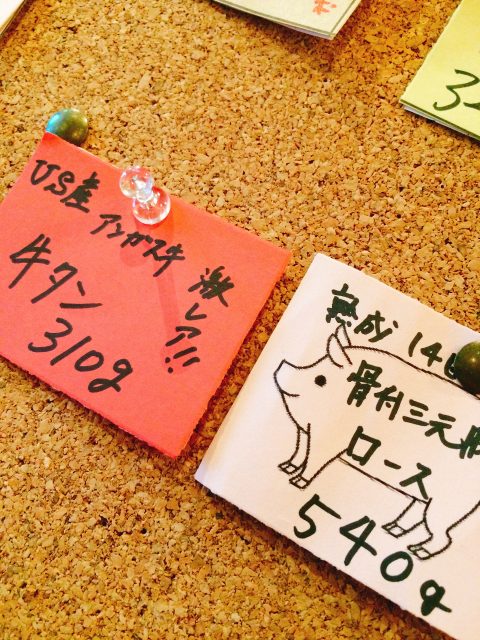 US産
アンガス牛
牛タン
激レア!!
310g
熟成 14日
骨付三元豚
ロース
540g
34